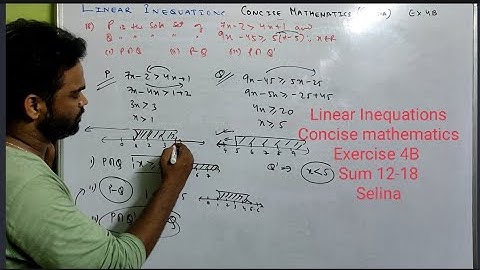 LINEAR INEQUATIONS CONCISE MATHEMATICS EX 4B
P is the soln set of 7x-2 > 4x+1 and
Q " " " " " 9x-45 ≥ 5(x-5), x∈R
i) P∩Q ii) P-Q iii) P∩Q'
P. 7x-2 > 4x+1
7x-4x > 1+2
3x > 3
x > 1
Q. 9x-45 ≥ 5x-25
9x-5x ≥ -25+45
4x ≥ 20
x ≥ 5
4 5 6 7 8 9
i) P∩Q
Q' ⇒ x<5
ii) P-Q
P∩Q'
Linear Inequations
Concise mathematics
Exercise 4B
Sum 12-18
Selina